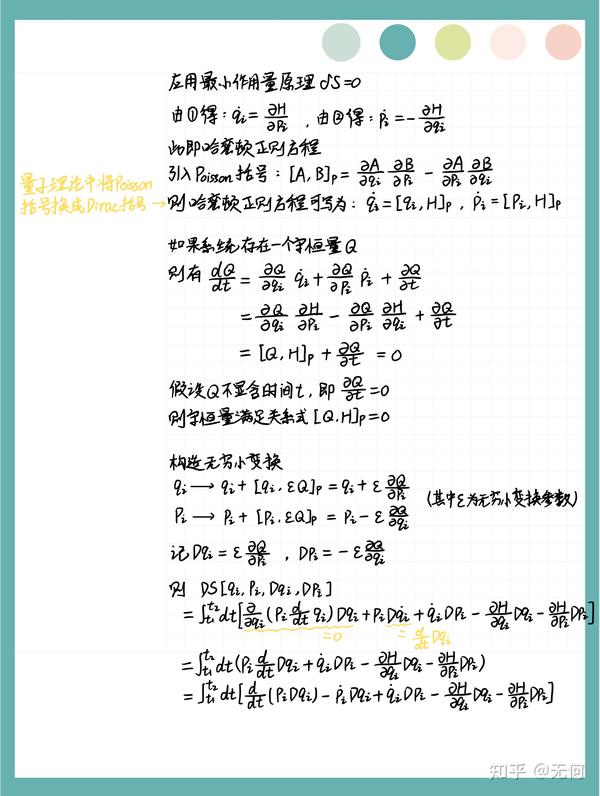 应用最小作用量原理 δS=0
由①得: q̇ᵢ = ∂H/∂pᵢ , 由②得: ṗᵢ = -∂H/∂qᵢ
此即哈密顿正则方程
引入Poisson括号: [A, B]ₚ = ∂A/∂qᵢ ∂B/∂pᵢ - ∂A/∂pᵢ ∂B/∂qᵢ
量子理论中将Poisson
括号换成Dirac括号 →
则哈密顿正则方程可写为: q̇ᵢ = [qᵢ, H]ₚ , ṗᵢ = [pᵢ, H]ₚ
如果系统存在一个守恒量Q
则有 dQ/dt = ∂Q/∂qᵢ q̇ᵢ + ∂Q/∂pᵢ ṗᵢ + ∂Q/∂t
= ∂Q/∂qᵢ ∂H/∂pᵢ - ∂Q/∂pᵢ ∂H/∂qᵢ + ∂Q/∂t
= [Q, H]ₚ + ∂Q/∂t = 0
假设Q不显含时间t, 即 ∂Q/∂t = 0
则守恒量满足关系式 [Q, H]ₚ = 0
构造无穷小变换
qᵢ → qᵢ + [qᵢ, εQ]ₚ = qᵢ + ε ∂Q/∂pᵢ
pᵢ → pᵢ + [pᵢ, εQ]ₚ = pᵢ - ε ∂Q/∂qᵢ (其中ε为无穷小变换参数)
记 Dqᵢ = ε ∂Q/∂pᵢ , Dpᵢ = -ε ∂Q/∂qᵢ
则 DS[qᵢ, pᵢ, Dqᵢ, Dpᵢ]
= ∫ₜ₁ᵗ² dt[∂/∂qᵢ (pᵢ d/dt qᵢ) Dqᵢ + pᵢ Dq̇ᵢ + q̇ᵢ Dpᵢ - ∂H/∂qᵢ Dqᵢ - ∂H/∂pᵢ Dpᵢ]
=0 = d/dt Dqᵢ
= ∫ₜ₁ᵗ² dt(pᵢ d/dt Dqᵢ + q̇ᵢ Dpᵢ - ∂H/∂qᵢ Dqᵢ - ∂H/∂pᵢ Dpᵢ)
= ∫ₜ₁ᵗ² dt[d/dt (pᵢ Dqᵢ) - ṗᵢ Dqᵢ + q̇ᵢ Dpᵢ - ∂H/∂qᵢ Dqᵢ - ∂H/∂pᵢ Dpᵢ]
知乎 @无何